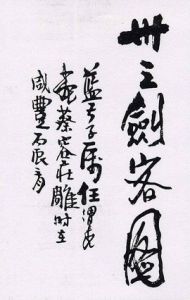 卅三劍客圖
子屬任渭長
畫蔡容莊雕時在
咸豐丙辰